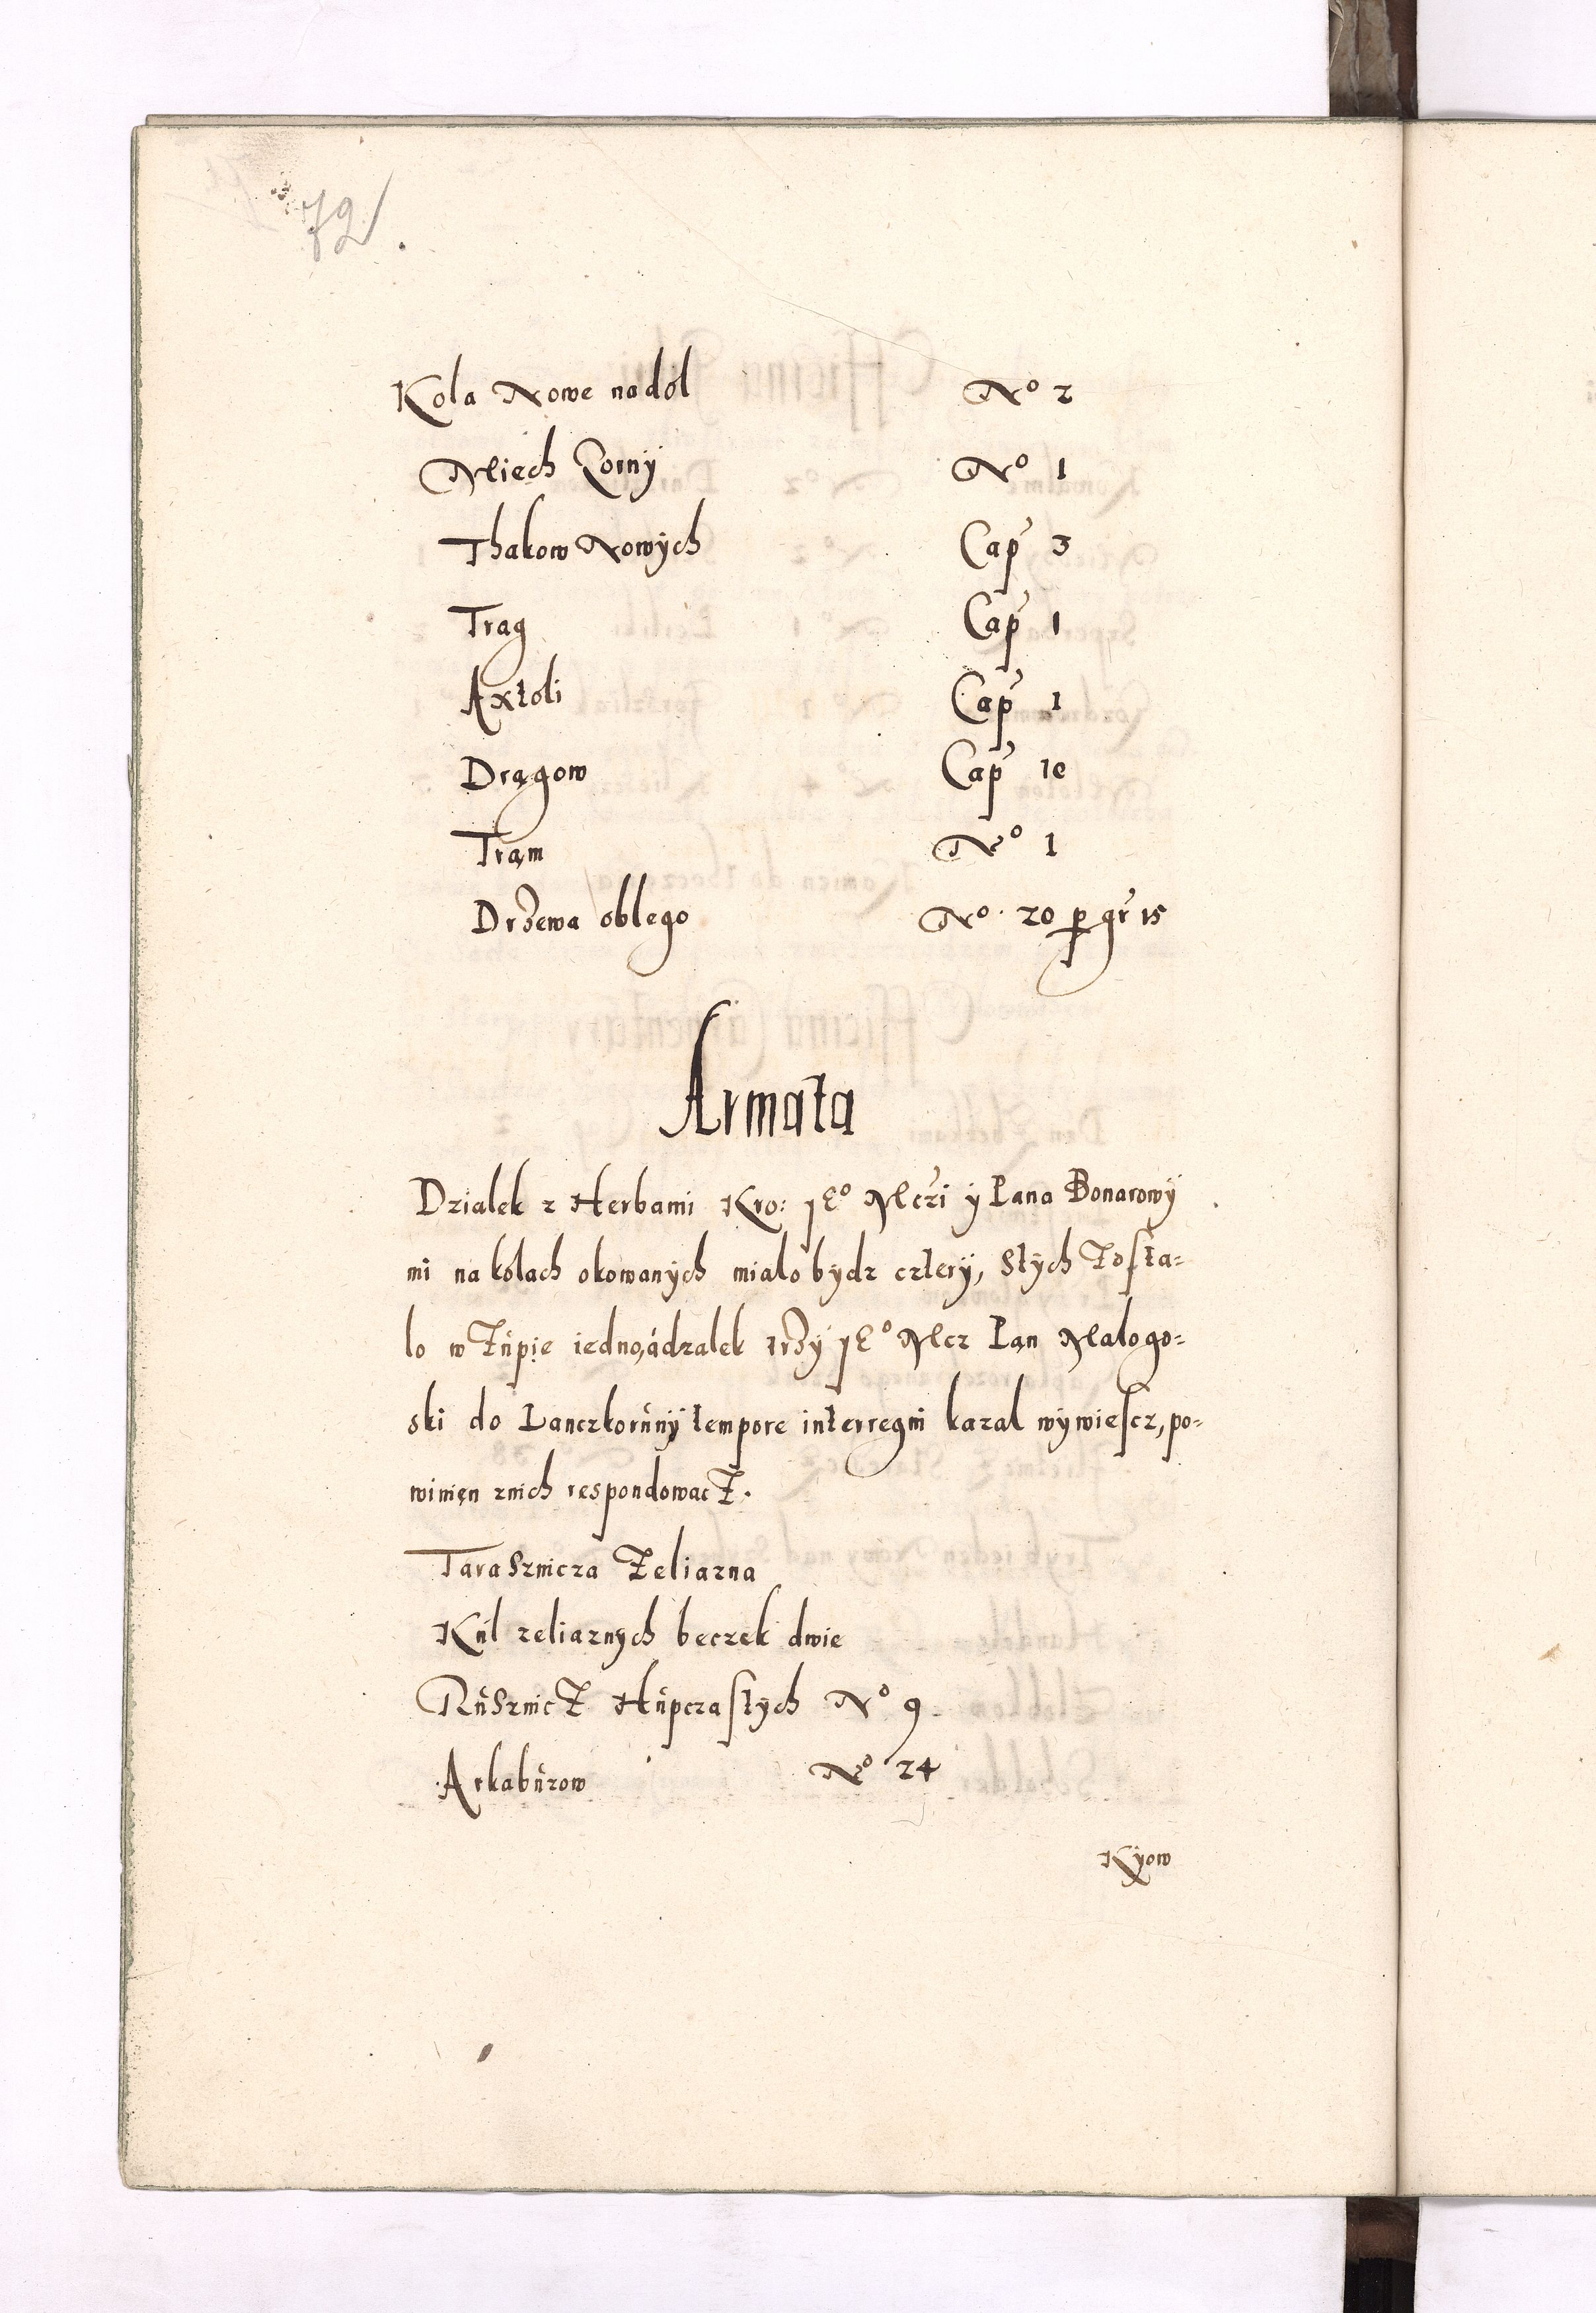 72
Kola Nowe na dol No 2
Miech Lomy No 1
Thakow Nowÿch Cap 3
Trag Cap 1
Axtoli Cap 1
Drągow Cap 10
Tram No 1
Drzewa oblego No. 20 p gr 15
Armata
Dzialek z Herbami Kro: JEo Mczi ÿ Pana Bonarowÿ
mi na kolach okowanÿch mialo bÿdz czterÿ, Stÿch Zosta=
lo w Zupie iedno, á dzalek trzÿ JEo Mcz Pan Malogo=
ski do Lanczkorunÿ tempore interregni kazal wÿwiescz, po=
winien znich respondowacz.
Tarasznicza Zeliazna
Kul zeliaznych beczek dwie
Rusznicz Hupczastÿch No 9
Arkabuzow No 24
Kÿow